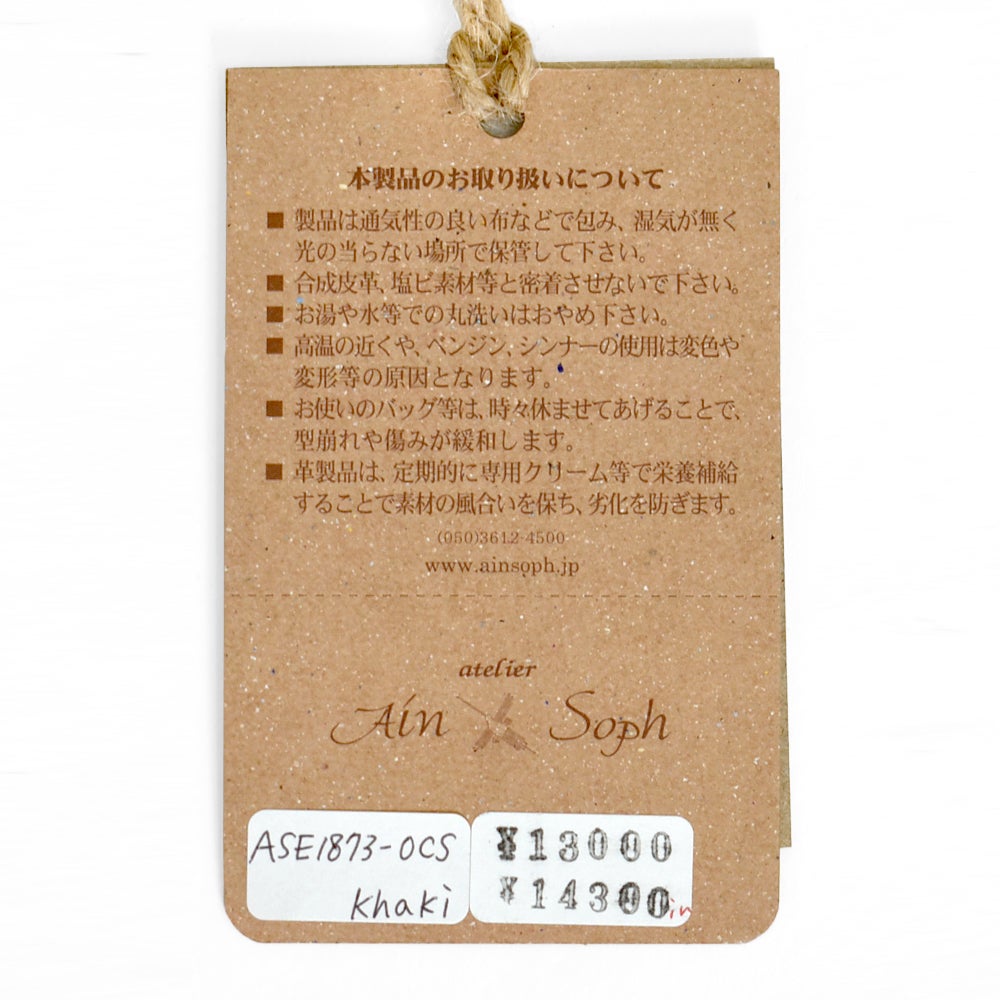 本製品のお取り扱いについて
■ 製品は通気性の良い布などで包み、湿気が無く
光の当らない場所で保管して下さい。
■ 合成皮革、塩ビ素材等と密着させないで下さい。
■ お湯や水等での丸洗いはおやめ下さい。
■ 高温の近くや、ベンジン、シンナーの使用は変色や
変形等の原因となります。
■ お使いのバッグ等は、時々休ませてあげることで、
型崩れや傷みが緩和します。
■ 革製品は、定期的に専用クリーム等で栄養補給
することで素材の風合いを保ち、劣化を防ぎます。
(050)3612-4500
www.ainsoph.jp
atelier
Ain Soph
ASE1873-OCS
khaki
¥13000
¥14300in